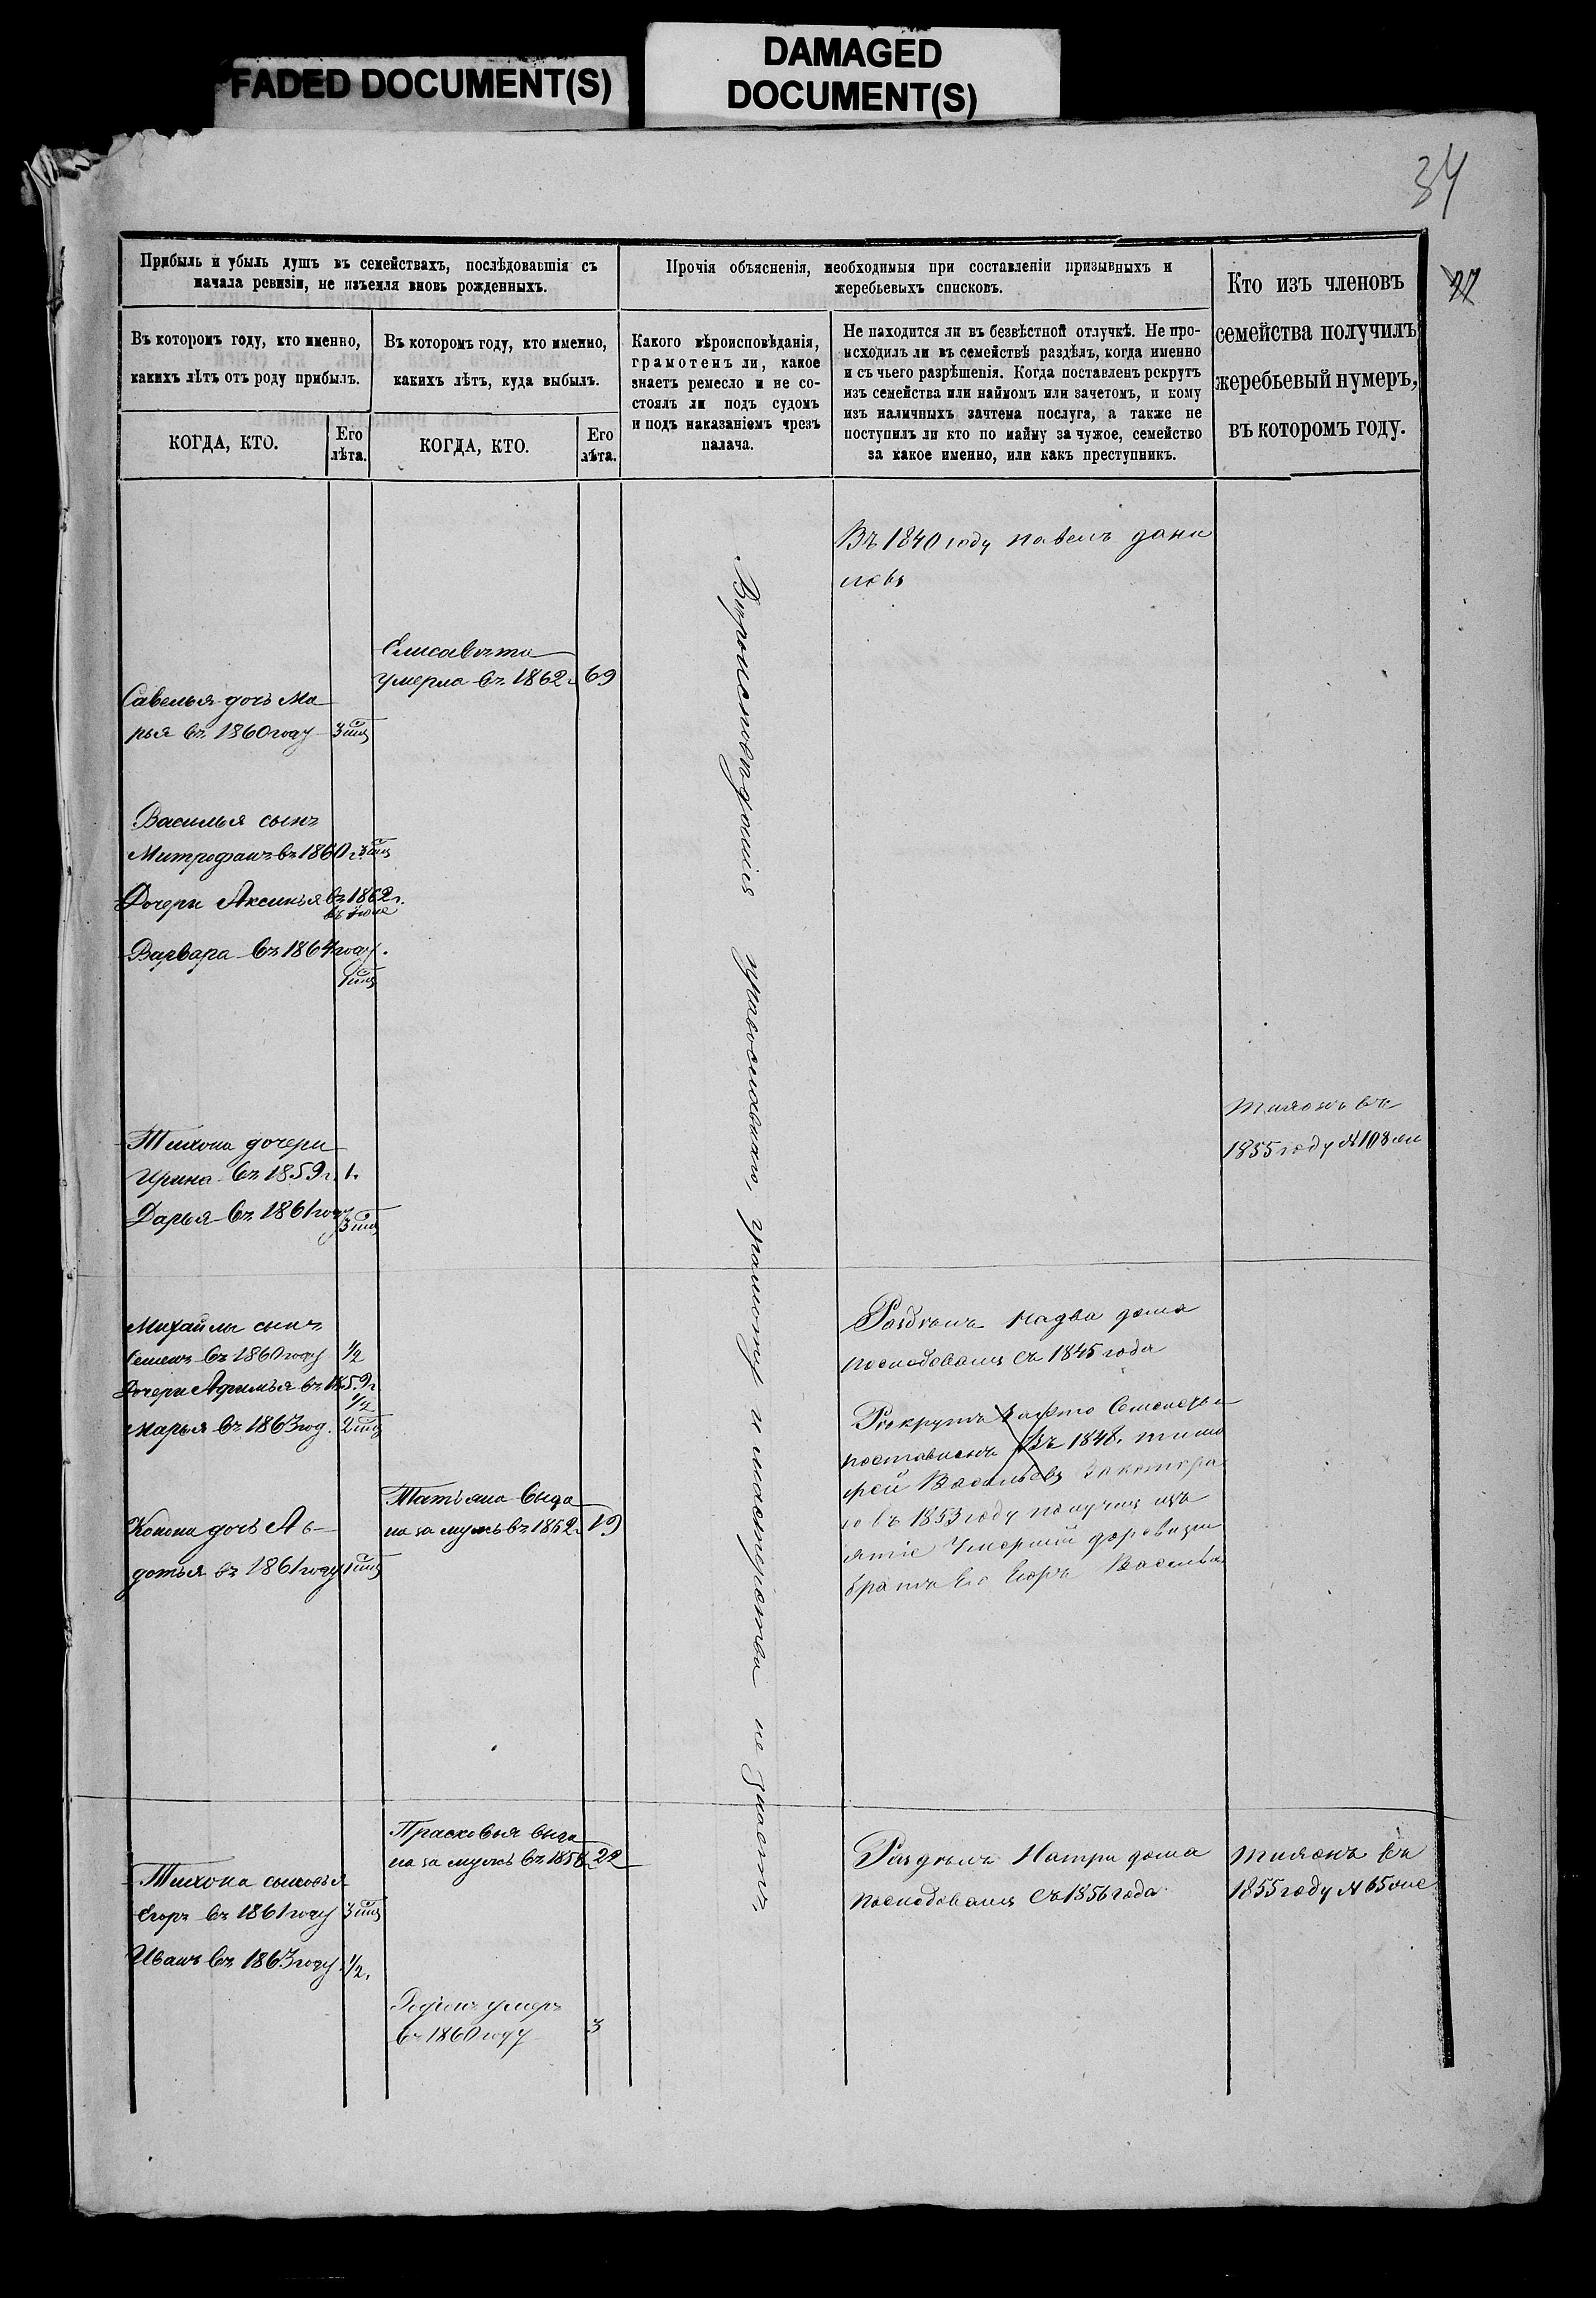 FADED DOCUMENT(S)
DAMAGED
DOCUMENT(S)
34
Прибыль и убыль душъ въ семействахъ, послѣдовавшія съ
начала ревизіи, не изъемля вновь рожденныхъ.
Въ которомъ году, кто именно,
какихъ лѣтъ отъ роду прибылъ.
КОГДА, КТО.
Его
лѣта.
Въ которомъ году, кто именно,
какихъ лѣтъ, куда выбылъ.
КОГДА, КТО.
Его
лѣта.
Прочія объясненія, необходимыя при составленіи призывныхъ и
жеребьевыхъ списковъ.
Какого вѣроисповѣданія,
грамотенъ ли, какое
знаетъ ремесло и не со-
стоялъ ли подъ судомъ
и подъ наказаніемъ чрезъ
палача.
Не находится ли въ безвѣстной отлучкѣ. Не про-
исходилъ ли въ семействѣ раздѣлъ, когда именно
и съ чьего разрѣшенія. Когда поставленъ рекрутъ
изъ семейства или наймомъ или зачетомъ, и кому
изъ наличныхъ зачтена послуга, а также не
поступилъ ли кто по найму за чужое, семейство
за какое именно, или какъ преступникъ.
Кто изъ членовъ
семейства получилъ
жеребьевый нумеръ,
въ которомъ году.
Въ 1840 году павелъ дани
ловъ
Елисавета
умерла въ 1862 г. 69
Савелья дочь Ма
рья въ 1860 году 3
Василья сынъ
Митрофанъ въ 1860 г. 3
Дочери Аксинья въ 1862 г.
Варвара въ 1864 году.
1
Вѣроисповѣданія православнаго, грамоту и мастерства не знаетъ
Тихонъ въ
1855 году №108
Тихона дочери
Ирина въ 1859 г. 1.
Дарья въ 1861 году 3
Михайлы сынъ
Семенъ въ 1860 году 1/2
Дочери Афимья въ 1859 г
1/4
Марья въ 1863 год. 2
Раздѣлъ на два дома
последовалъ съ 1845 года
Рекрутъ за это Семейство
поставленъ Въ 1848. тимо
фей Васильевъ За котора
го въ 1853 году получил
Умерший
братъ его Егоръ Васильев
Татіяна выда
на за мужъ въ 1862 г 19
Конона дочь Ав
дотья въ 1861 году 1
Прасковья выда
на за мужъ въ 1858 22
Раздѣлъ На три дома
последовалъ Съ 1856 года
Тихонъ въ
1855 году №65
Тихона сыновья
Егоръ въ 1861 году 3
Иванъ въ 1863 году 1/2.
Родіонъ умеръ
въ 1860 году 3